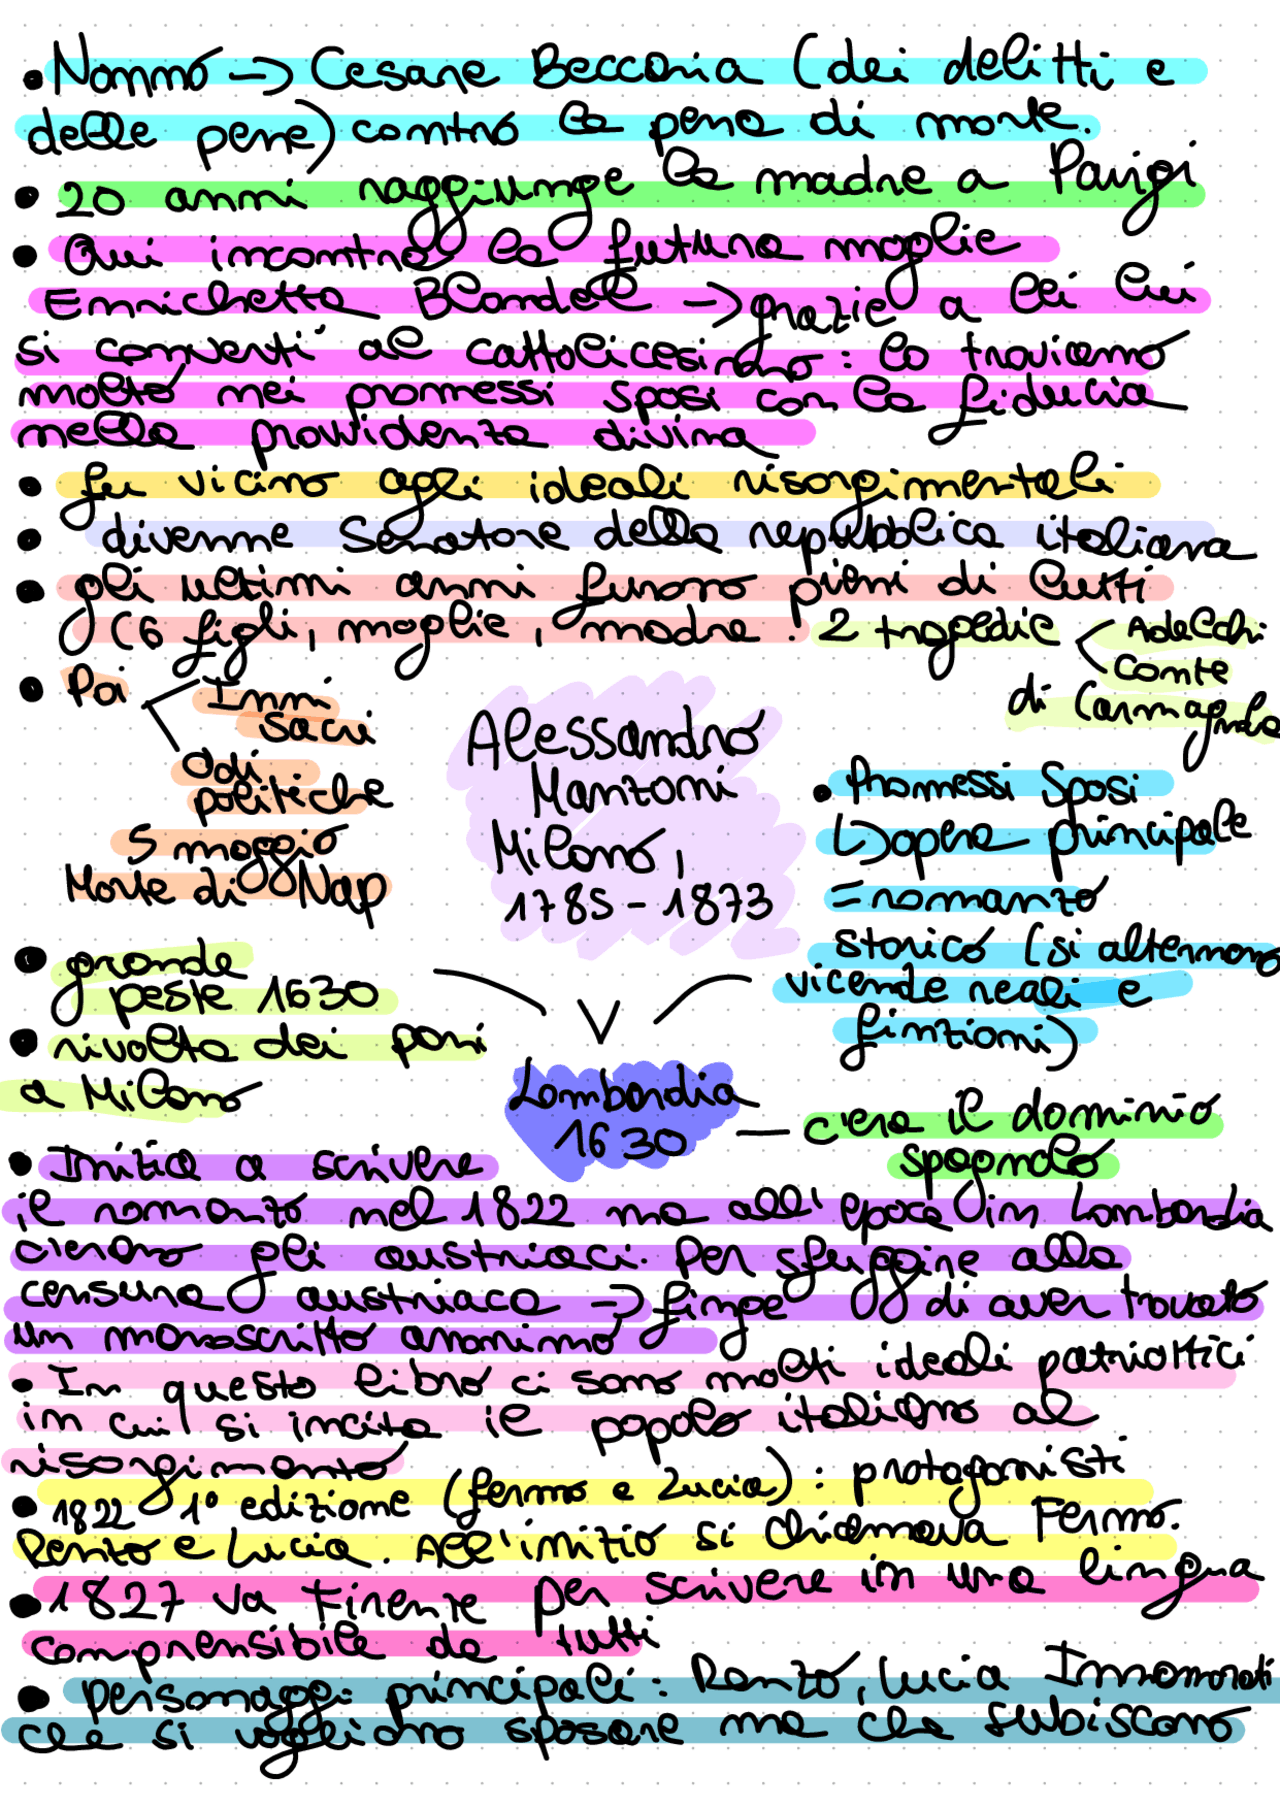 • Nonno -> Cesare Beccaria (dei delitti e
delle pene) contro la pena di morte.
• 20 anni raggiunge la madre a Parigi
• Qui incontra la futura moglie
Enrichetta Blondell -> grazie a lei lui
si convertì al cattolicesimo: lo troviamo
molto nei promessi sposi con la fiducia
nella provvidenza divina
• fu vicino agli ideali risorgimentali
• divenne Senatore della repubblica italiana
• gli ultimi anni furono pieni di lutti
(6 figli, moglie, madre.
2 tragedie < Adelchi
Conte
di Carmagnola
• Poi < Inni
Sacri
Odi
politiche
5 maggio
Morte di Nap
Alessandro
Manzoni
Milano,
1785 - 1873
• Promessi Sposi
↳ opera principale
= romanzo
storico (si alternano
vicende reali e
finzioni)
• grande
peste 1630
• rivolta dei pani
a Milano
Lombardia
1630 — c'era il dominio
spagnolo
• Inizia a scrivere
il romanzo nel 1822 ma all'epoca in Lombardia
c'erano gli austriaci. Per sfuggire alla
censura austriaca -> finge di aver trovato
un manoscritto anonimo
• In questo libro ci sono molti ideali patriottici
in cui si incita il popolo italiano al
risorgimento
• 1822 1° edizione (fermo e Lucia): protagonisti
Renzo e Lucia. All'inizio si chiamava Fermo.
• 1827 va Firenze per scrivere in una lingua
comprensibile da tutti
• personaggi principali: Renzo, Lucia Innamorati
che si vogliono sposare ma che subiscono